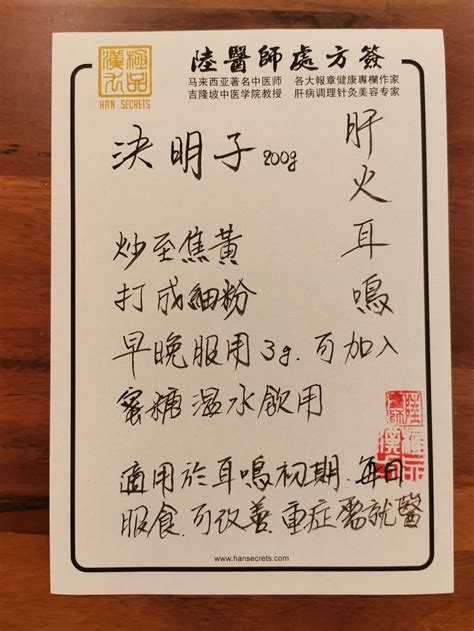 陸醫師處方簽
HAN SECRETS
马来西亚著名中医师 各大報章健康專欄作家
吉隆坡中医学院教授 肝病调理针灸美容专家
肝火耳鳴
決明子 200g
炒至焦黃
打成細粉
早晚服用3g.可加入
蜜糖溫水飲用
適用於耳鳴初期.每日
服食.可改善.重症需就醫
www.hansecrets.com